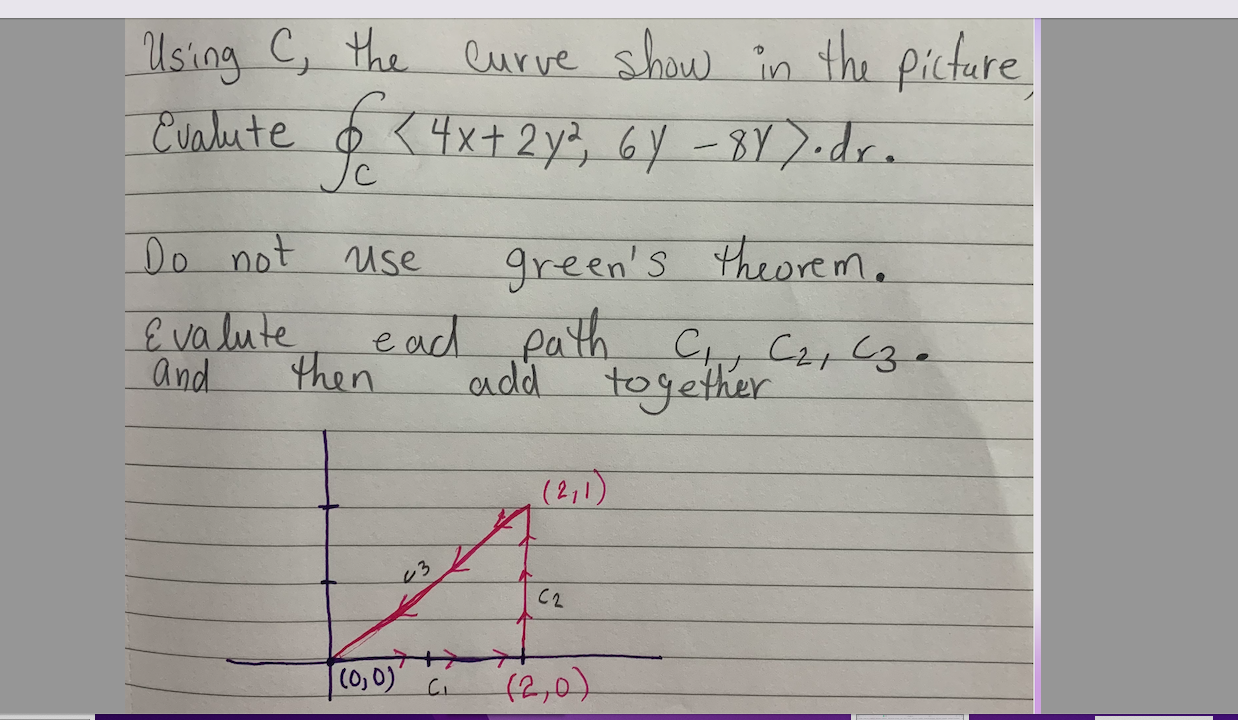 Using C, the curve show in the picture,
Evalute ∮C < 4x + 2y², 6y - 8y > · dr.
Do not use green's theorem.
Evalute eacl path C1, C2, C3.
and then add together
(2,1)
C3
C2
(0,0) C1 (2,0)